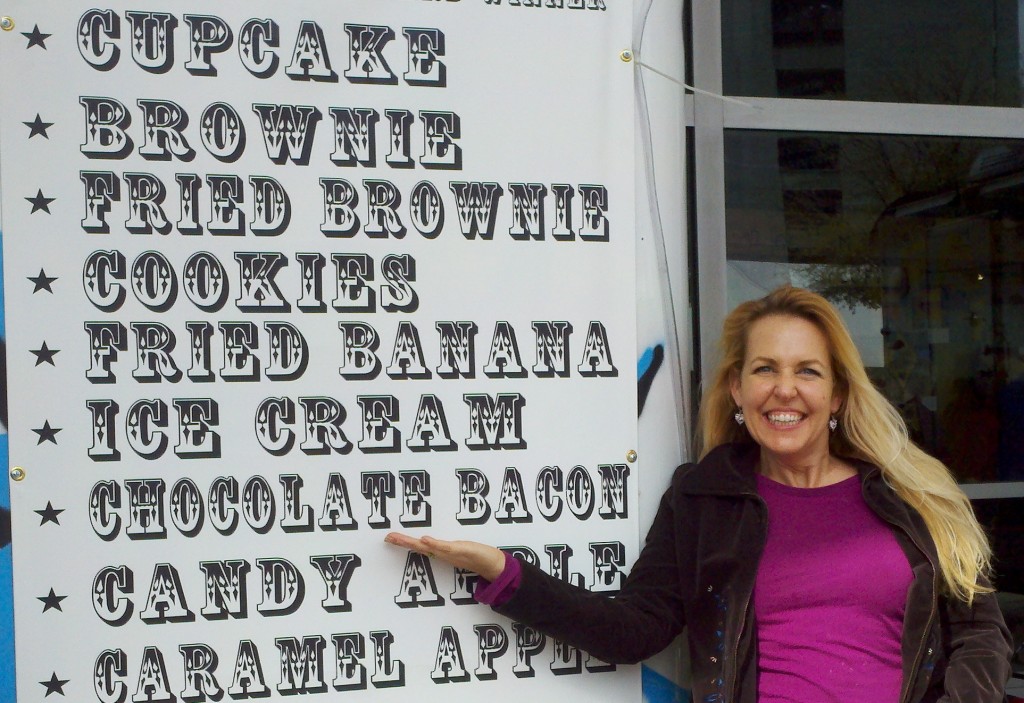 WINNER
★ CUPCAKE
★ BROWNIE
★ FRIED BROWNIE
★ COOKIES
★ FRIED BANANA
★ ICE CREAM
★ CHOCOLATE BACON
★ CANDY APPLE
★ CARAMEL APPLE